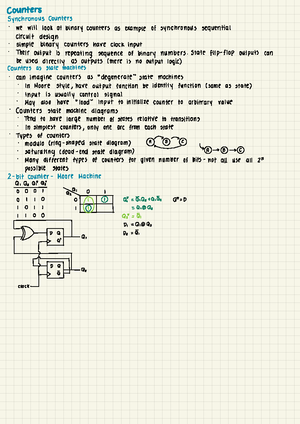 Counters
Synchronous Counters
· we will look at binary counters as example of synchronous sequential
circuit design
· simple binary counters have clock input
· Their output is repeating sequence of binary numbers. State flip-flop outputs can
be used directly as outputs (there is no output logic)
Counters as State Machines
· can imagine counters as "degenerate" state machines
· In Moore style, have output function be identity function (same as state)
· Input is usually control signal
· May also have "load" input to initialize counter to arbitrary value
· Counters state machine diagrams
· Tend to have large number of states relative to transitions
· In simplest counters, only one arc from each state
· Types of counters
· modulo (ring-shaped state diagram) A B C
· saturating (dead-end state diagram) A B C
· Many different types of counters for given number of bits - not all use all 2ⁿ
possible states
2-bit counter - Moore Machine
Q₁ Q₀ Q₁⁺ Q₀⁺
0 0 0 1
0 1 1 0
1 0 1 1
1 1 0 0
0 1
0
1
D₀ = Q̄₀
D Q
Q₁
D Q
Q₀
clock